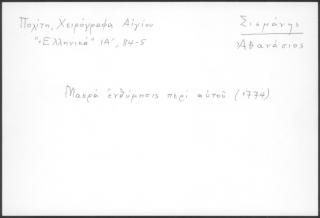 Πολίτη, Χειρόγραφα Αἰγίου
"Ἑλληνικά" ΙΑ', 84-5
Σισμάνης
Ἀθανάσιος
Μακρὰ ἐνθύμησις περὶ αὐτοῦ (1774).